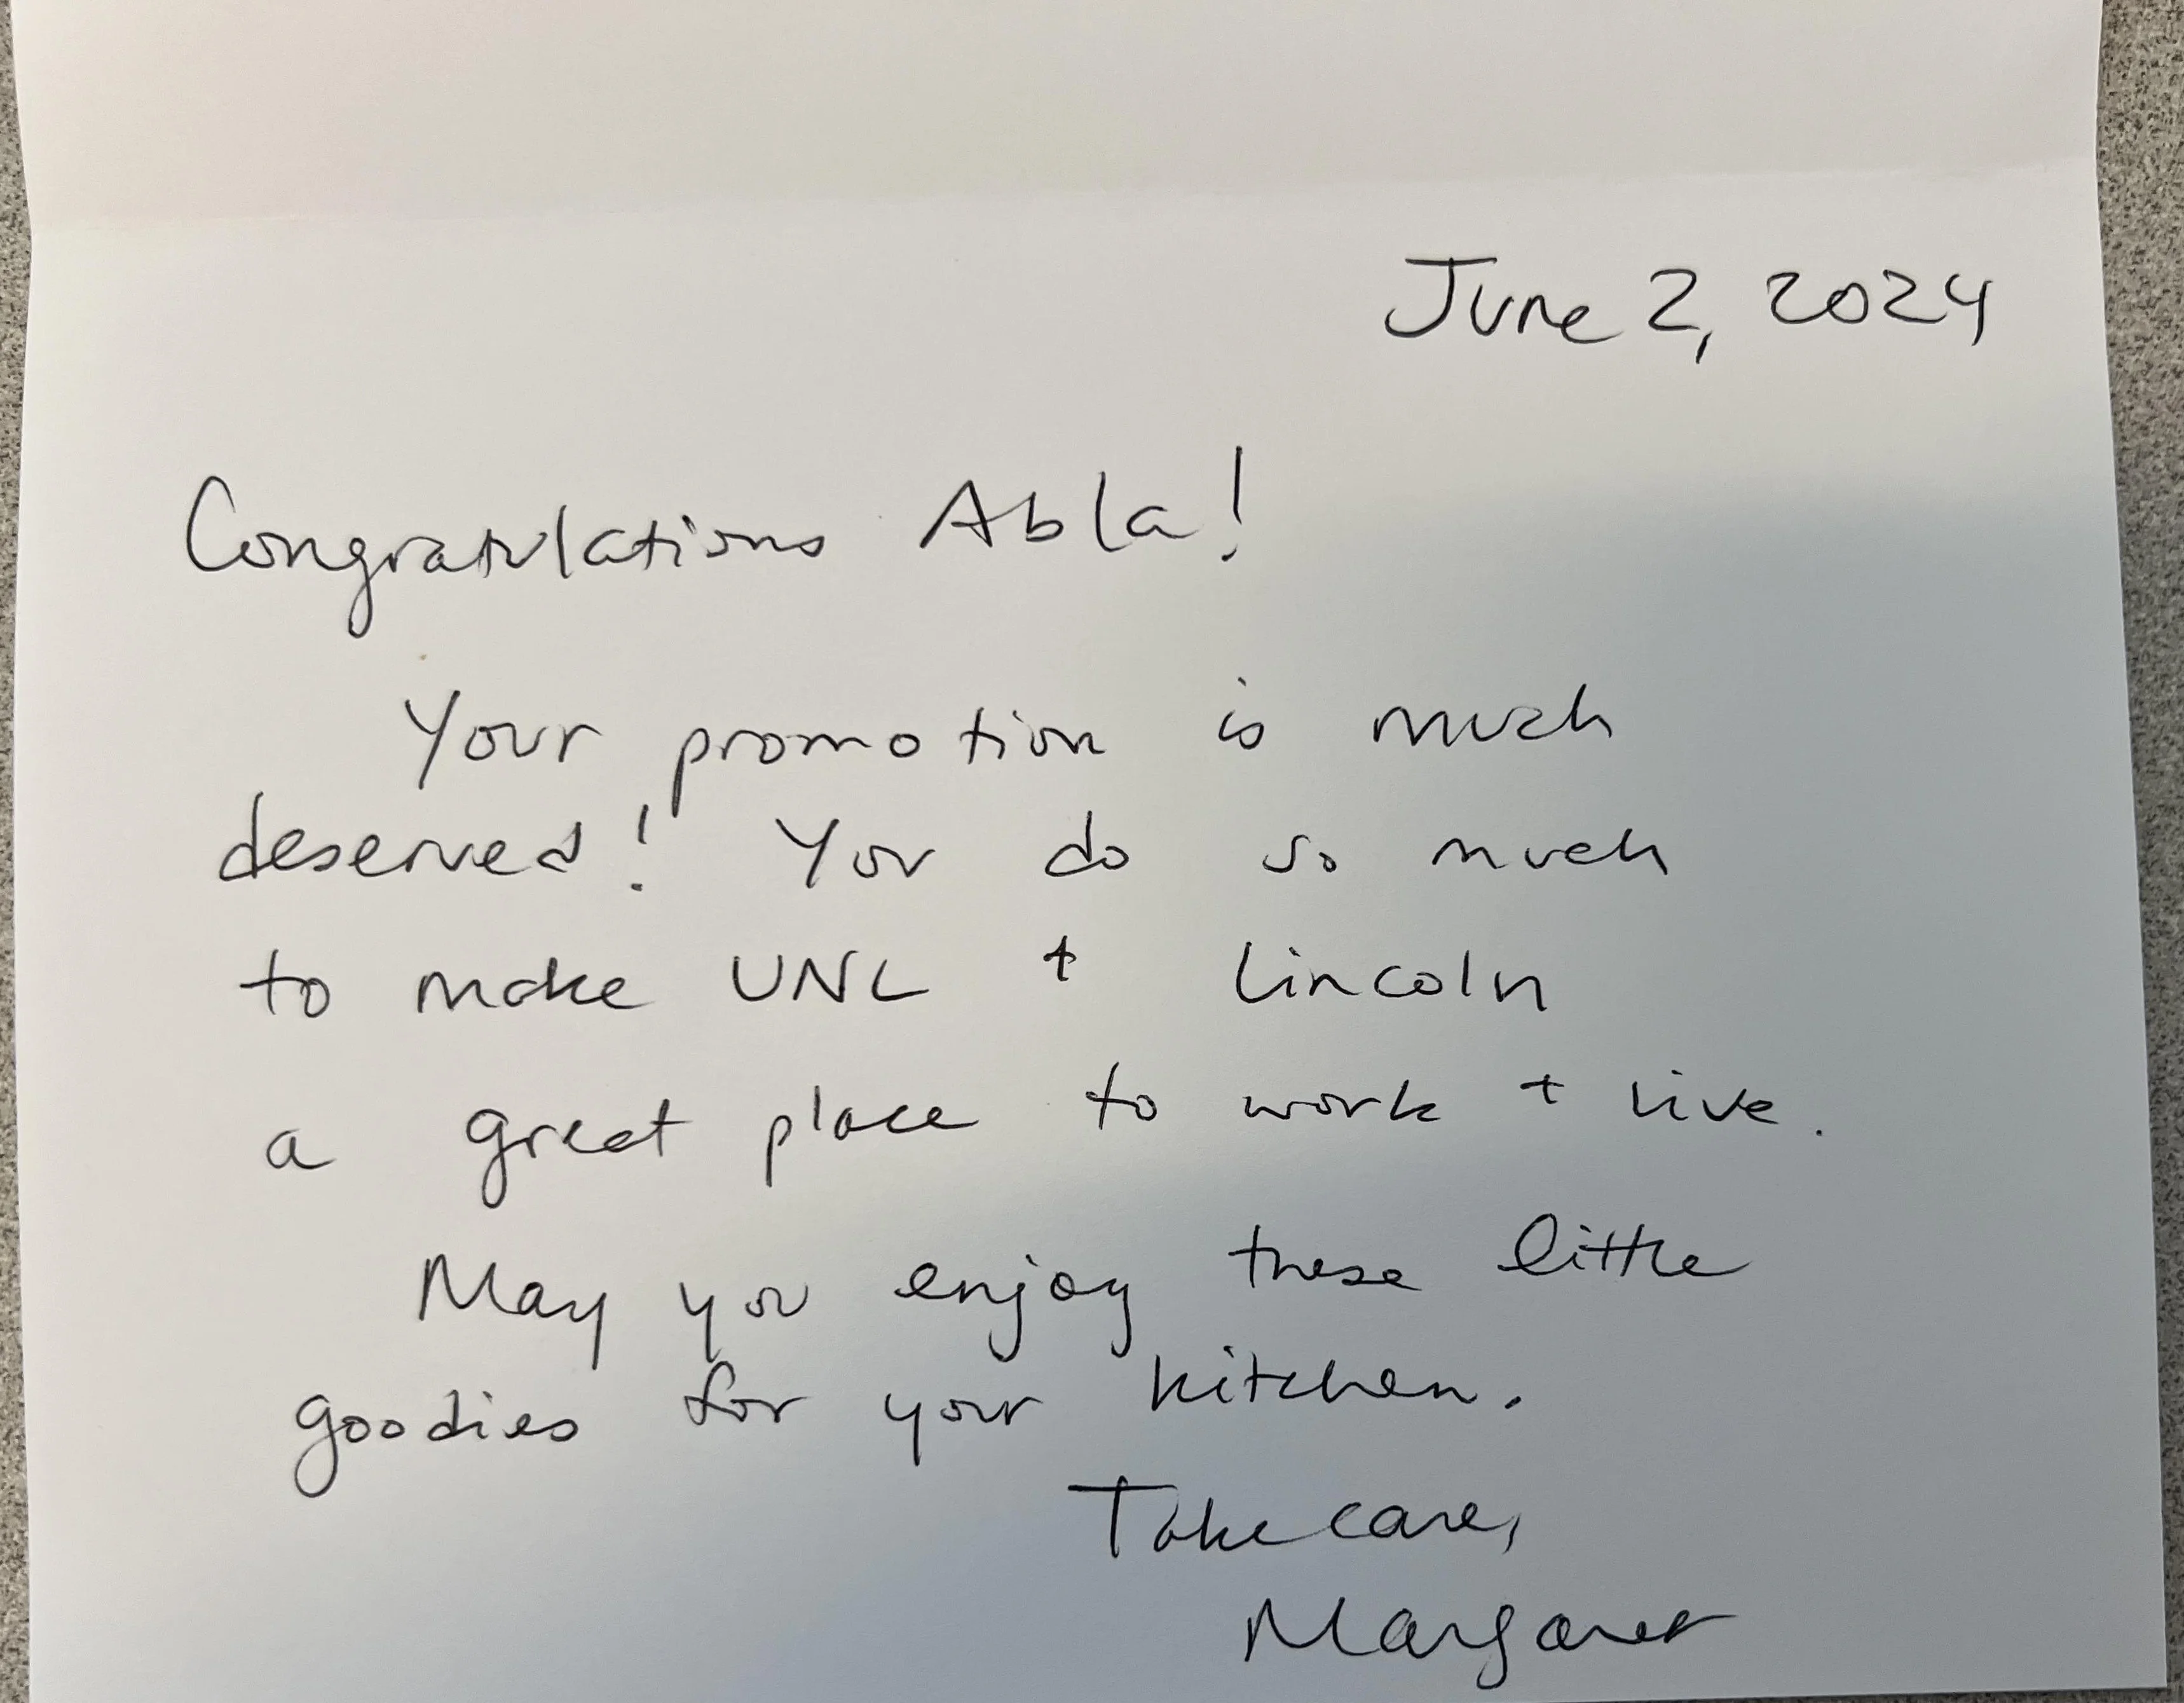 June 2, 2024
Congratulations Abla!
Your promotion is much
deserved! You do so much
to make UNL + Lincoln
a great place to work + live.
May you enjoy these little
goodies for your kitchen.
Take care,
Margaret